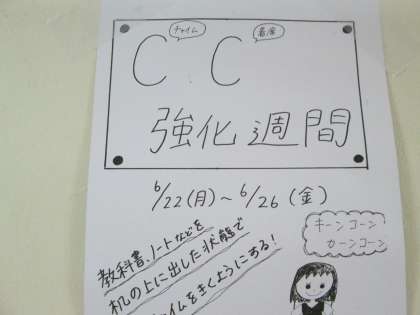 チャイム 着席
C C
強化週間
6/22(月)～6/26(金)
キーンコーン
カーンコーン
教科書、ノートなどを
机の上に出した状態で
チャイムをきくようにする!